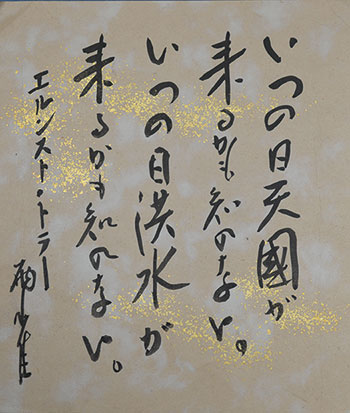 いつの日天國が
来るかも知れない。
いつの日洪水が
来るかも知れない。
エルンスト・トラー